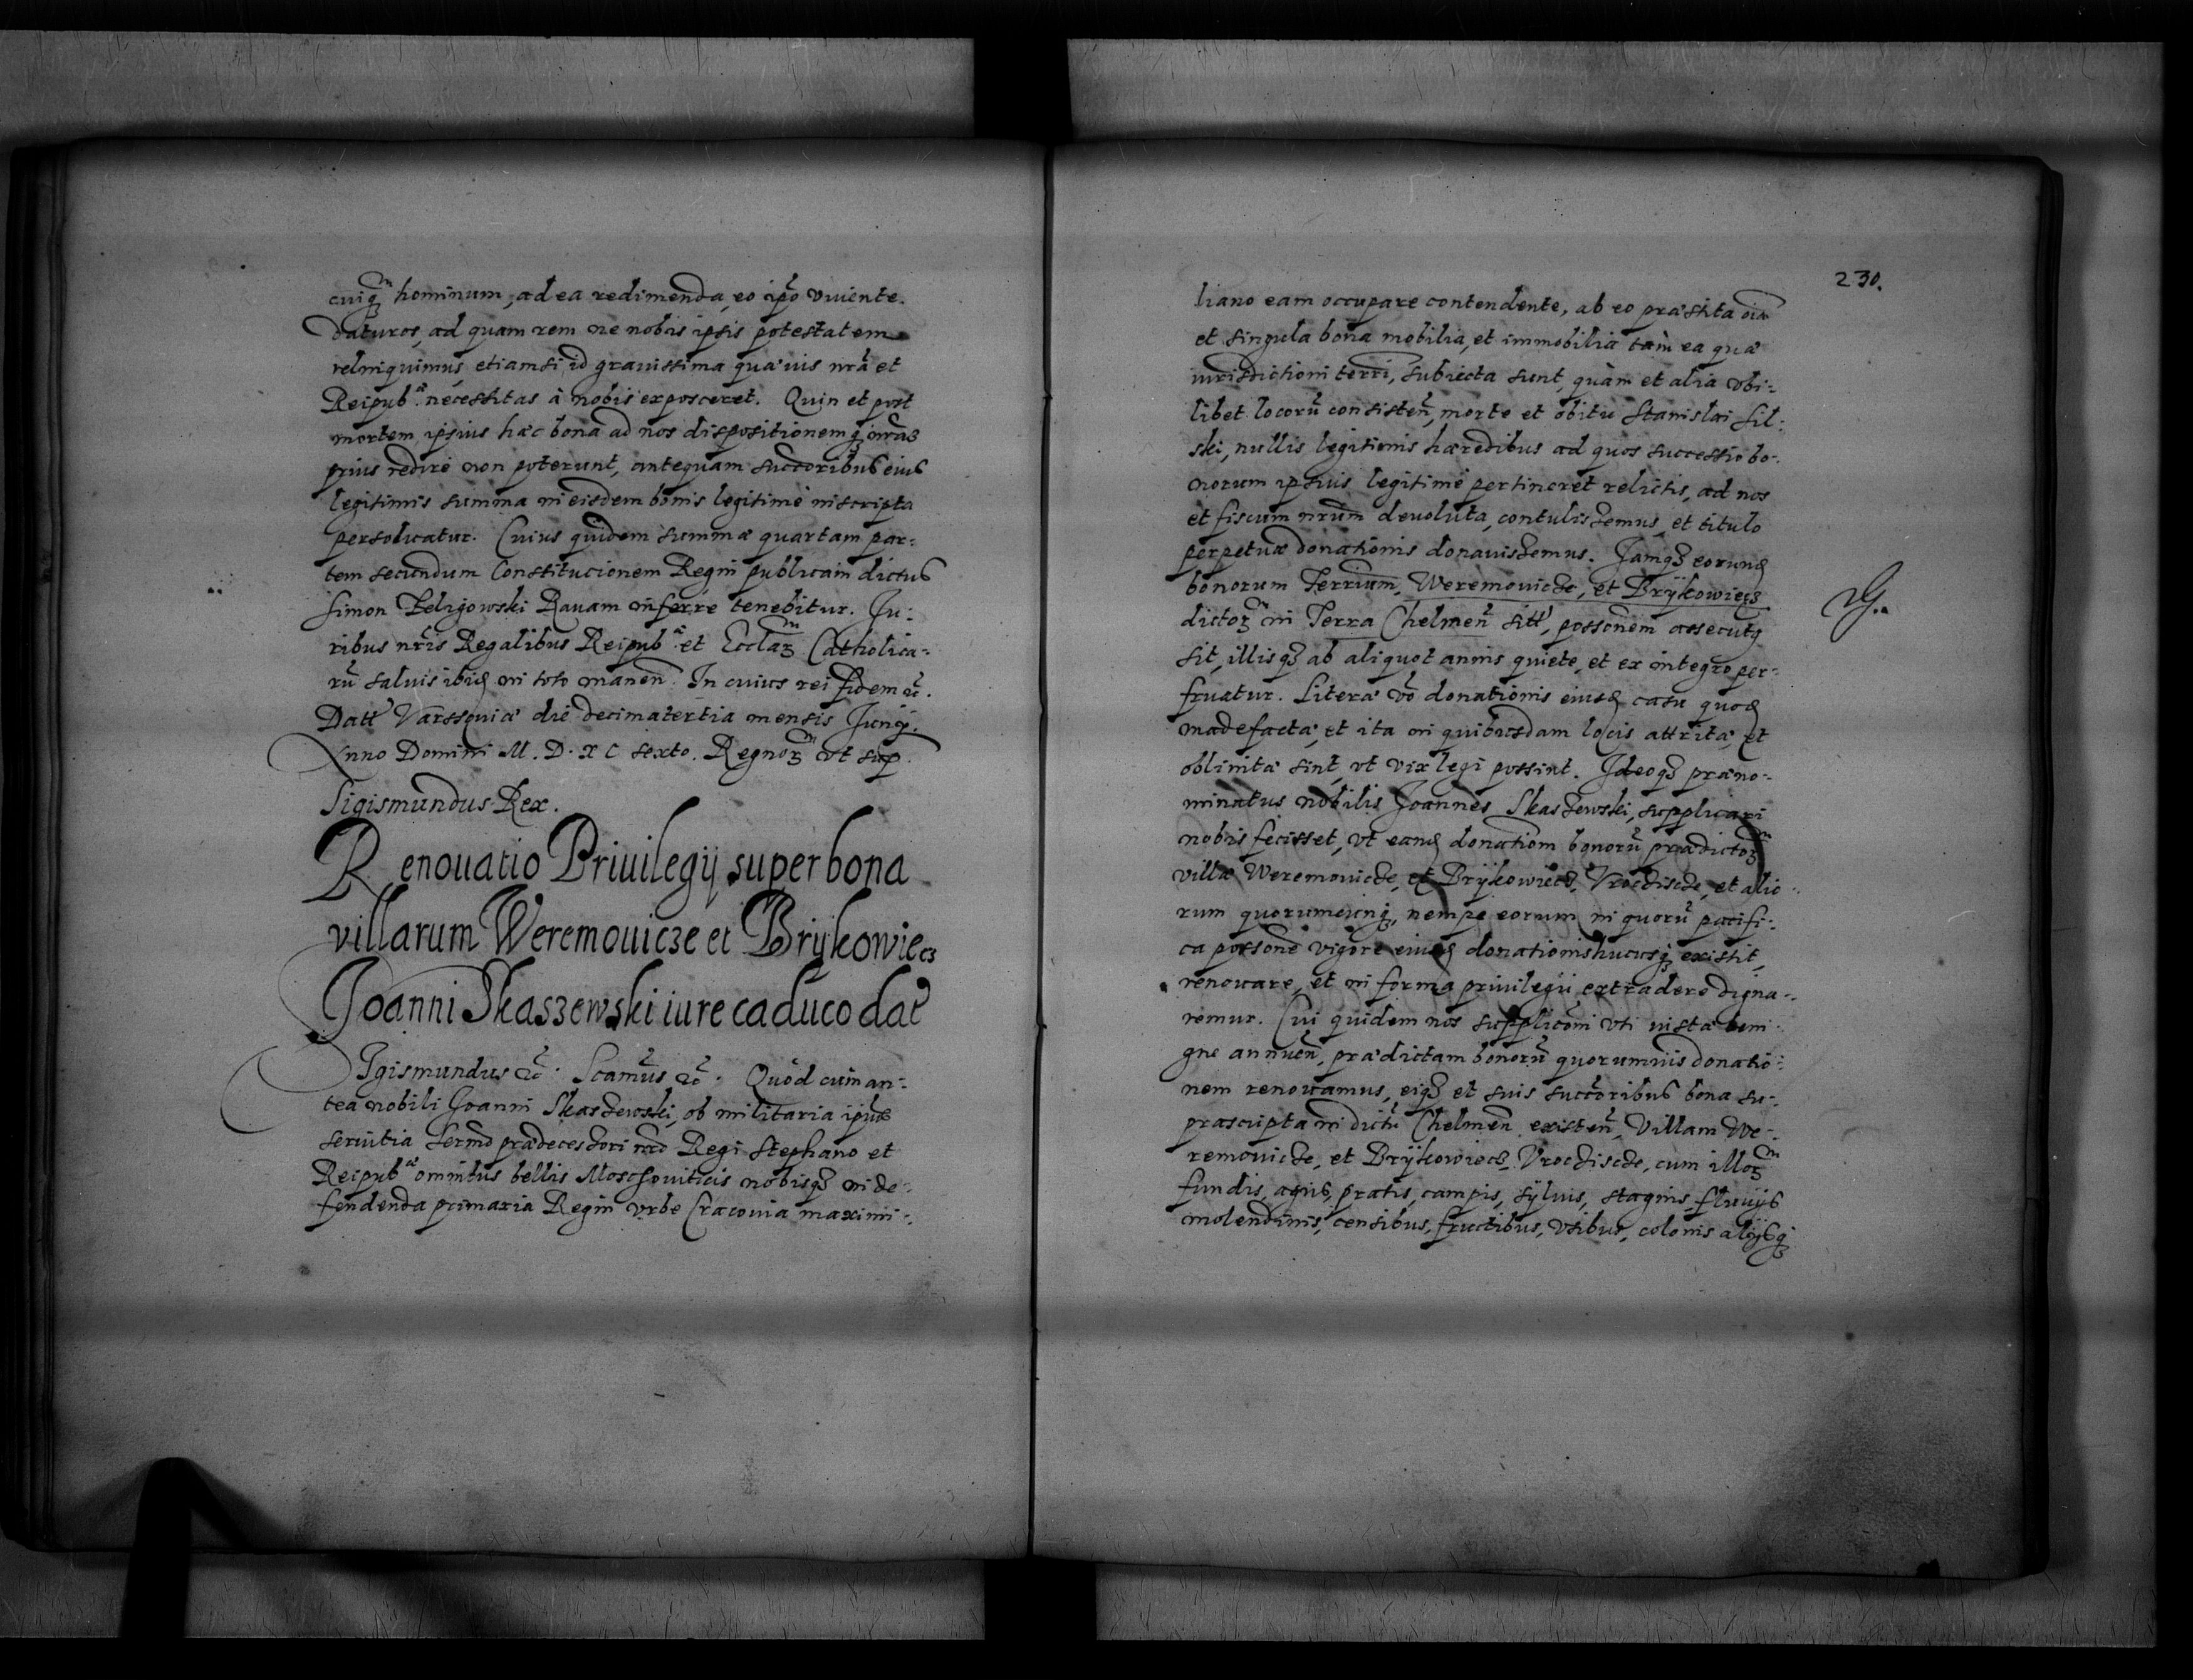 cuiq₃ᵐ hominum, ad ea redimenda, eo ip̃o viuente.
daturos, ad quam rem ne nobis ipsis potestatem
relinquimus, etiamsi id grauissima quæuis nrã et
Reipub.ᵃᵉ necessitas à nobis exposceret. Quin et post
mortem ipsius hæc bona ad nos dispositionemq₃ nrãm
prius redire non poterunt, antequam succoribus eius
legitimis summa in eisdem bonis legitimè inscripta
persoluatur. Cuius quidem summæ quartam par-
tem secundum Constitucionem Regni publicam dictus
Simon Rauam inferre tenebitur. Iu-
ribus nr̃is Regalibus Reipub.ᵃᵉ et Eccla₃ᵐ Catholica-
rũ saluis ibid in toto maneñ. In cuius rei fidem &c̃.
Datt Varssouiæ die decimatertia mensis Junij.
Anno Domini M. D. XC sexto. Regno₃ᵐ vt sup.
Sigismundus Rex.
Renouatio Priuilegij super bona
villarum Weremouicze et Brÿkowiecz
Joanni Skaszewski iure caduco dat
Sigismundus &c̃. Scamũs &c̃. Quòd cum an-
tea nobili Joanni Skaszewski, ob militaria ipius
seruitia sermo prædecessori nr̃o Regi Stephano et
Reipub.ᵃᵉ omnibus bellis Moschouiticis nobisq₃ in de-
fendenda primaria Regni vrbe Cracouia maximi-
230.
liano eam occupare contendente, ab eo præstita oia
et singula bona mobilia, et immobilia tàm ea quæ
iurisdictioni terrñ, subiecta sunt, quàm et alia vbi-
libet locorũ consisteñ, morte et obitu Stanislai Sil-
ski, nullis legitimis hæredibus ad quos successio bo-
norum ipsius legitimè pertineret relictis, ad nos
et fiscum nrũm deuoluta, contulissemus, et titulo
perpetuæ donationis donauissemus. Jamq₃ eorund
bonorum Terrium, Weremouicze, et Brÿkowiecz
dicto₃ᵐ in Terra Chelmeñ sitt, possonem assecutq
sit, illisq₃ ab aliquot annis quiete, et ex integro per-
fruatur. Literæ võ donationis eiusd casu quod
madefactæ, et ita in quibusdam locis attritæ, et
oblinitæ sint, vt vix legi possint. Ideoq₃ præno-
minatus nobilis Joannes Skaszewski, supplicari
nobis fecisset, vt eand donationem bonorũ prædicto₃ᵐ
villæ Weremouicze, et Brÿkowiecz, Vrocziscze, et alio-
rum quorumcunq₃, nempe eorum in quorũ pacifi-
ca possone vigore eiusd donationis hucusq₃ existit,
renouare, et in forma priuilegij extradere digna-
remur. Cui quidem nos supplicõni vti iustæ beni-
gne annueñ, prædictam bonorũ quorumuis donatio-
nem renouamus, eiq₃ et suis succoribus bona su-
prascripta in dictũ Chelmeñ existeñ, Villam We-
remouicze, et Brÿkowiecz, Vrocziscze, cum illo₃ᵐ
fundis, agris, pratis, campis, sÿluis, stagnis, fluuijs
molendinis, censibus, fructibus, vsibus, colonis alijsq₃